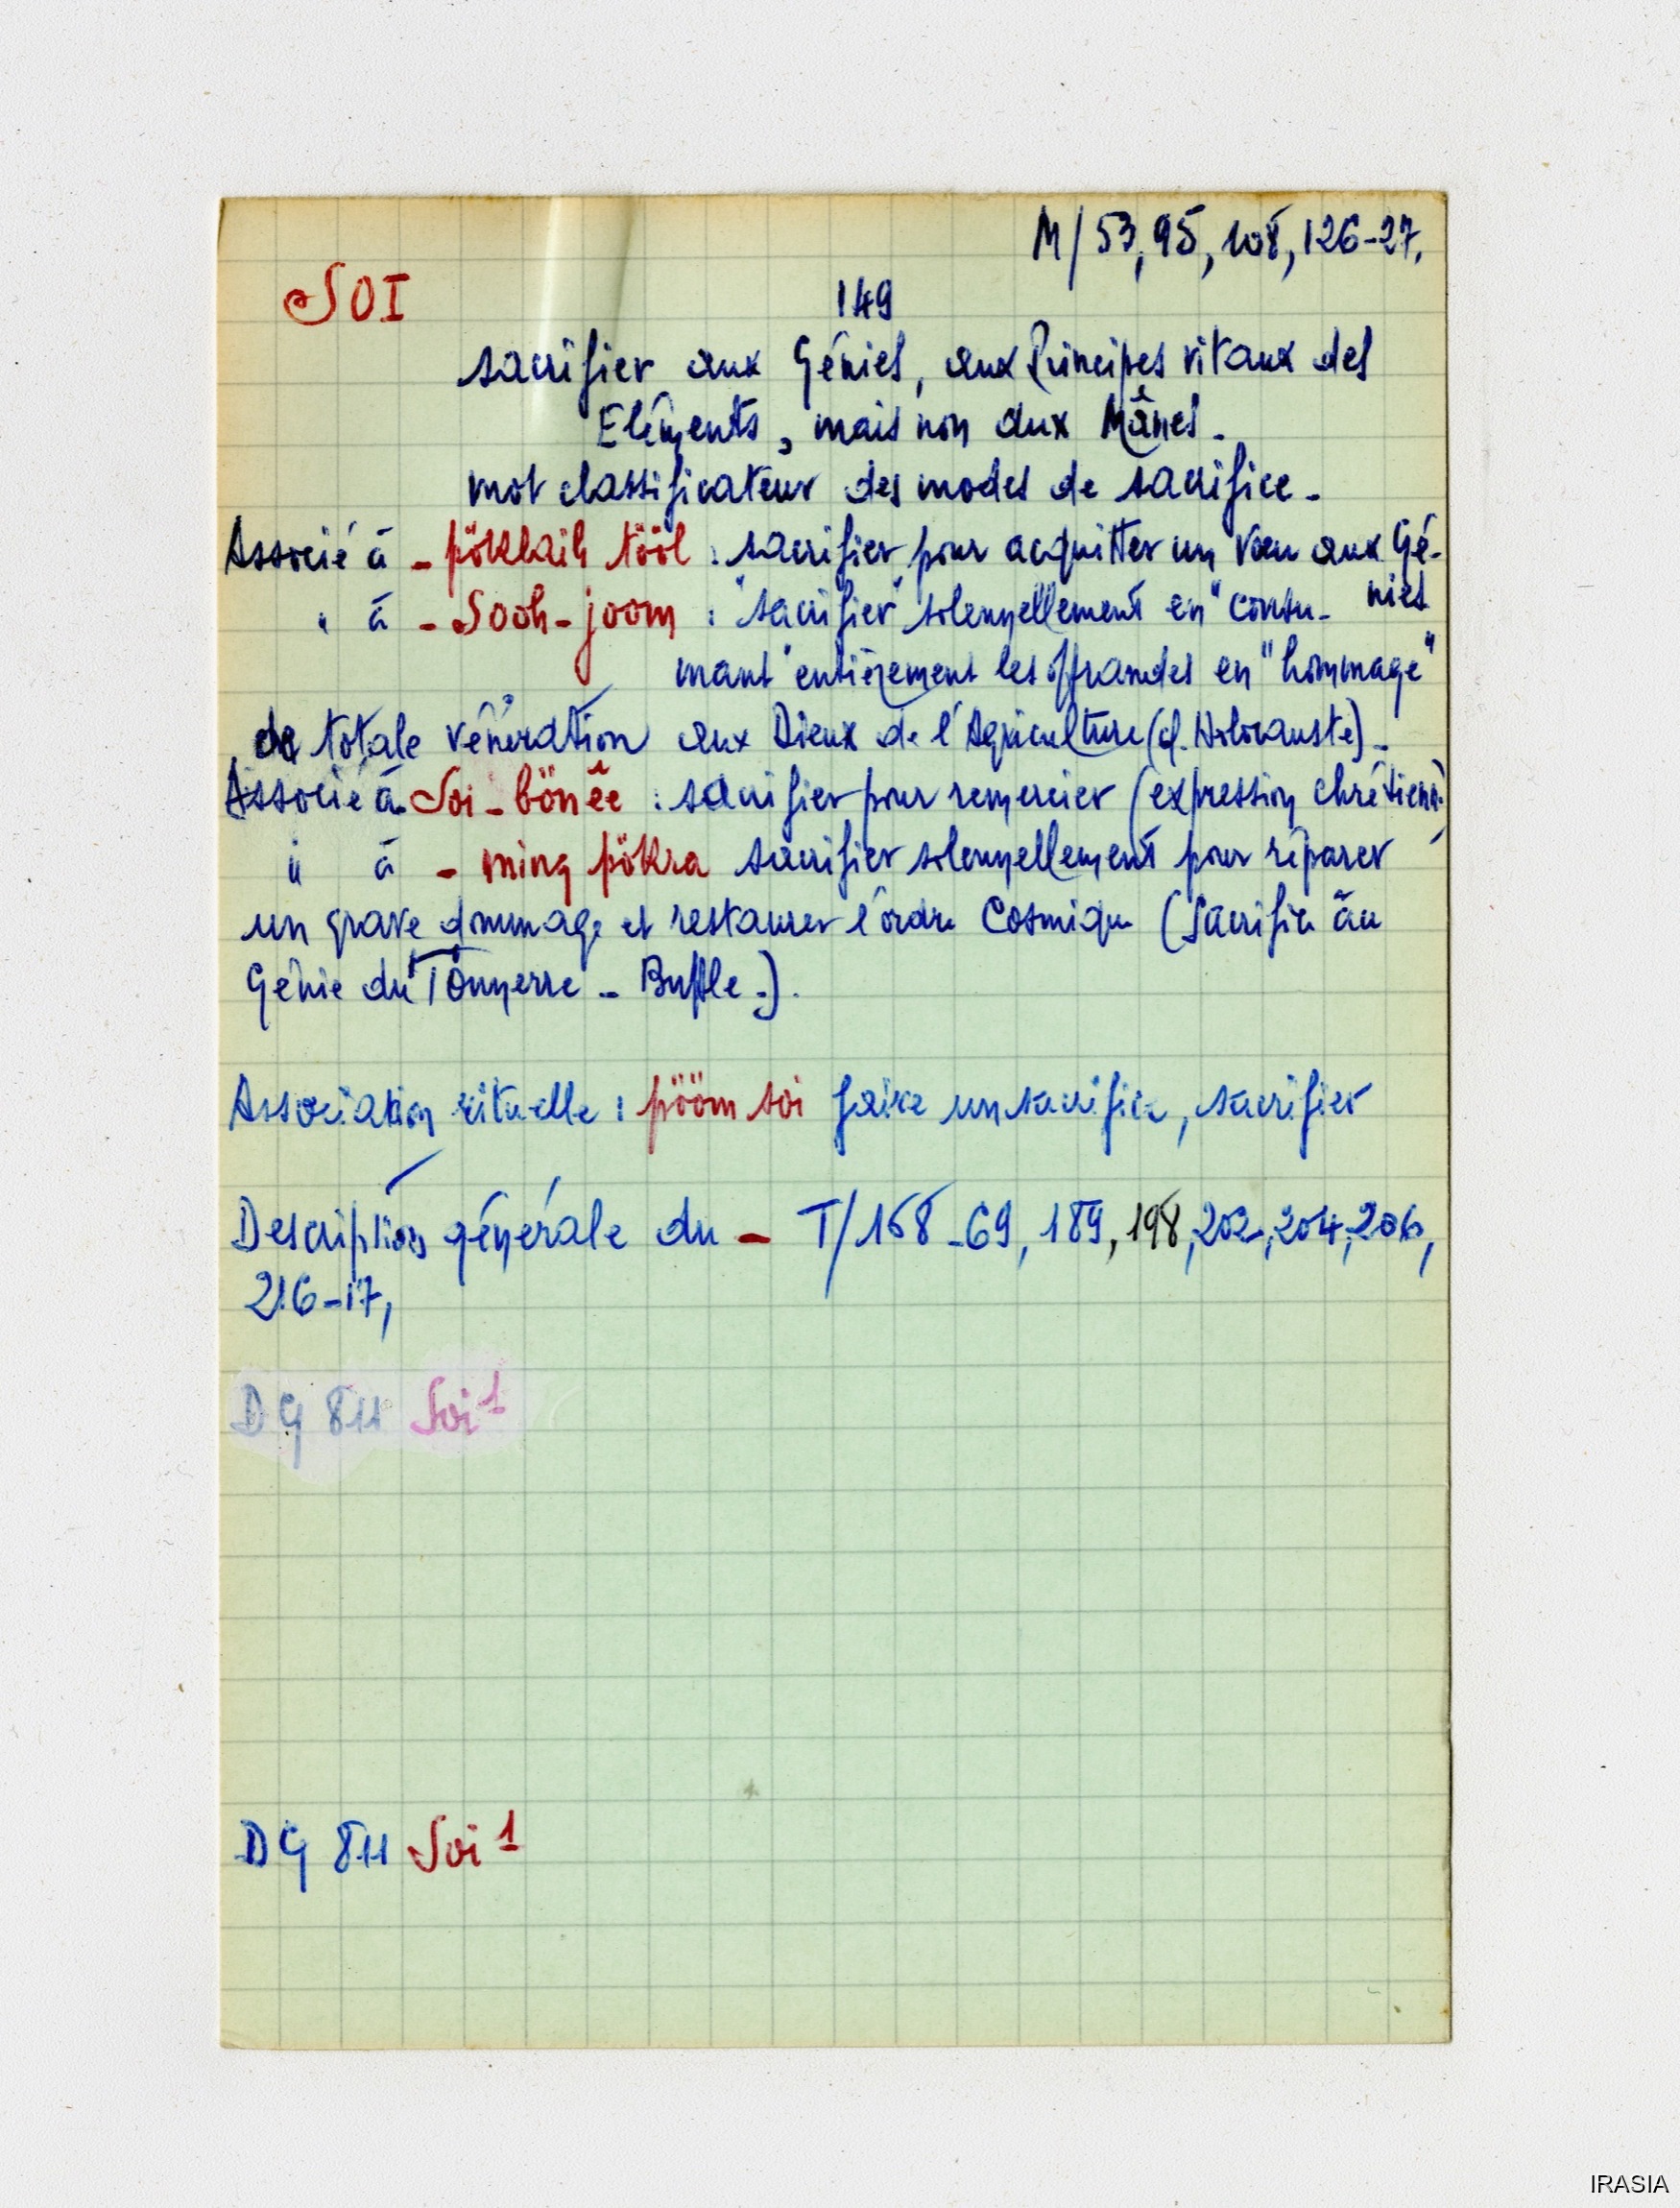 M/53, 95, 108, 126-27,
SOI
149
sacrifier aux Génies, aux Principes vitaux des
Eléments, mais non aux Mânes.
mot classificateur des modes de sacrifice.
Associé à - pöklaih tööl : sacrifier pour acquitter un vœu aux Gé-
nies
" à - Sooh - joom : "sacrifier" solennellement en "consu-
mant" entièrement les offrandes en "hommage"
de totale vénération aux Dieux de l'Agriculture (cf. Holocauste).
Associé à Soi - bönêe : sacrifier pour remercier (expression chrétienne)
" à - ming pökra sacrifier solennellement pour réparer
un grave dommage et restaurer l'ordre Cosmique (Sacrifice au
Génie du Tonnerre - Buffle.).
Association rituelle : pööm soi faire un sacrifice, sacrifier
Description générale du - T/168-69, 189, 198, 202, 204, 206,
216-17,
DG 811 Soi 1
DG 811 Soi 1
IRASIA